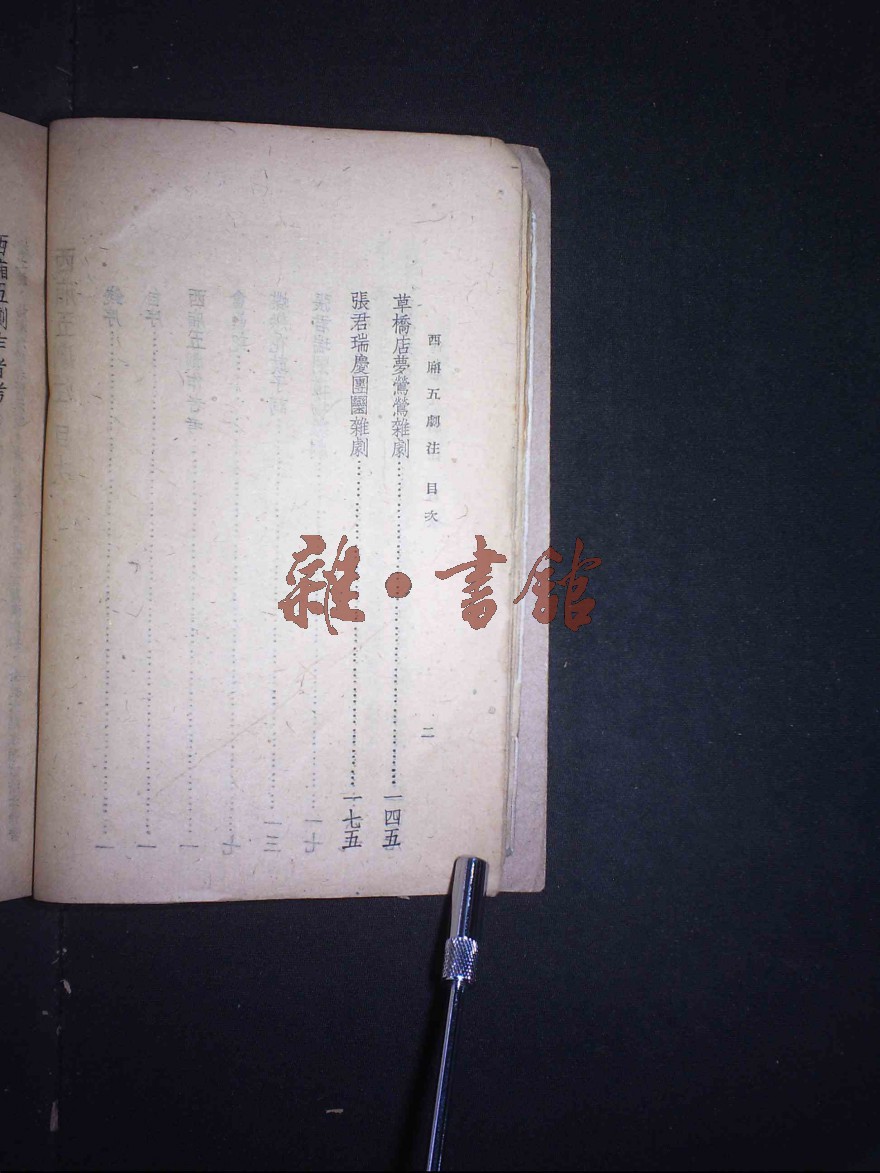 西廂五劇注 目次
二
草橋店夢鶯鶯雜劇⋯⋯一四五
張君瑞慶團圞雜劇⋯⋯一七五
西廂五劇作者考
雜·書館